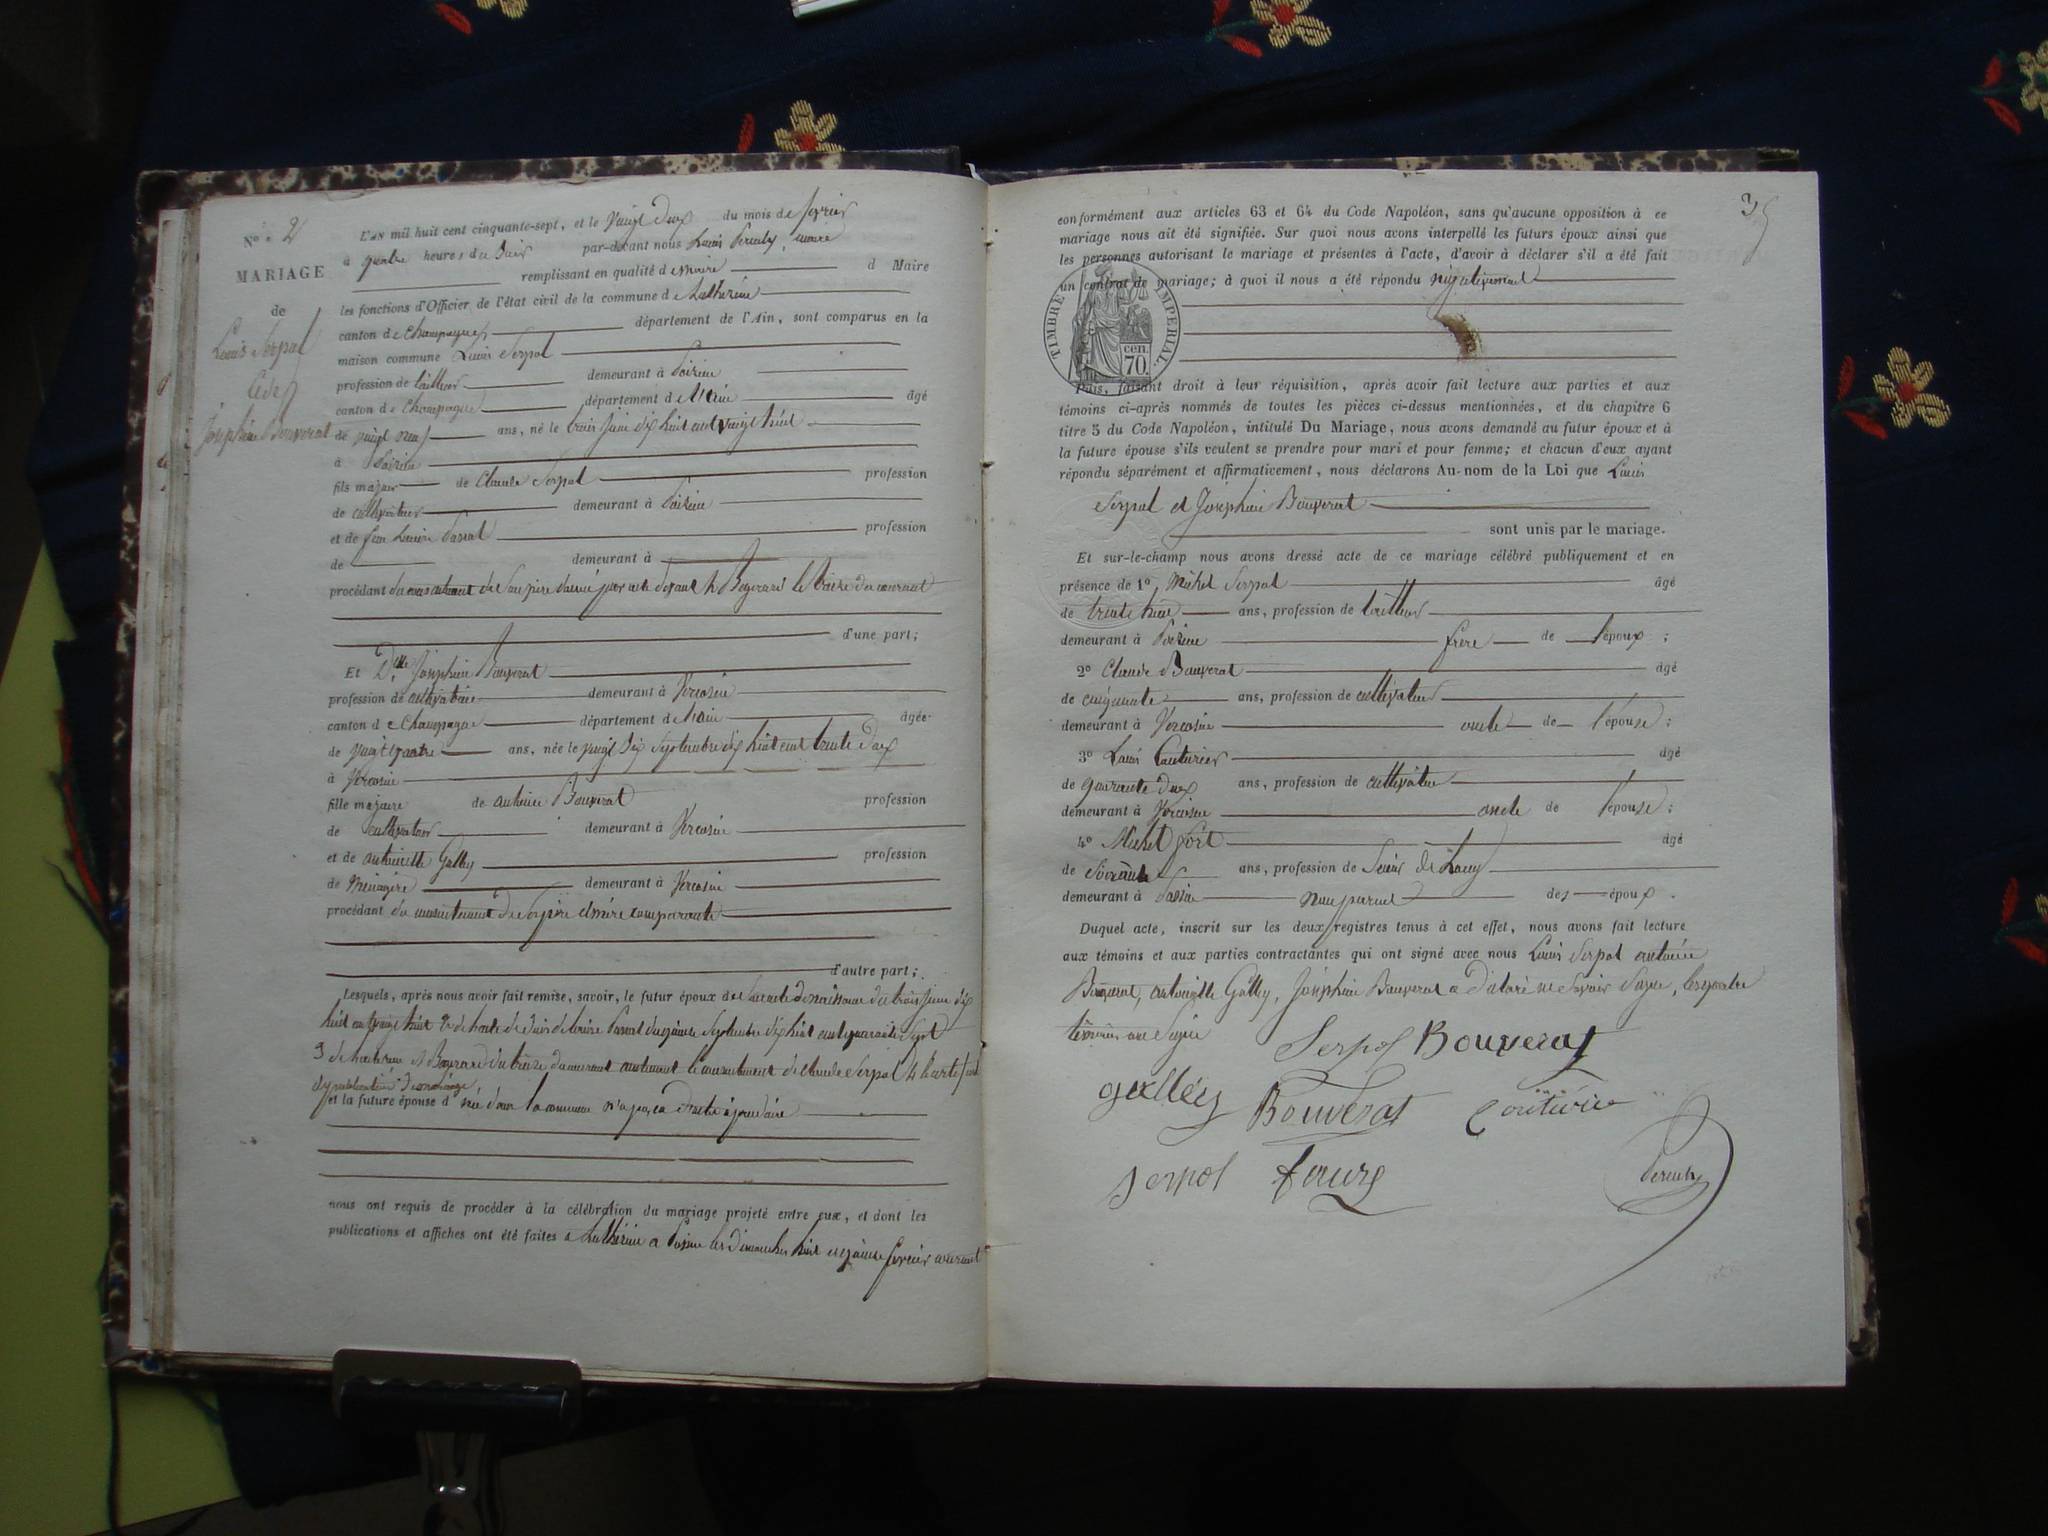 N° 2
MARIAGE
de
Louis Serpol
et de
Joséphine Bouverat
L'AN mil huit cent cinquante-sept, et le vingt deux du mois de février
à quatre heures du soir par-devant nous Louis maire
remplissant en qualité de maire d Maire
les fonctions d'Officier de l'état civil de la commune de
canton de Champagne département de l'Ain, sont comparus en la
maison commune Louis Serpol
profession de tailleur demeurant à
canton de Champagne département de l'ain âgé
de vingt neuf ans, né le trois juin dix huit cent vingt huit
à
fils majeur de Claude Serpol profession
de cultivateur demeurant à
et de feue profession
de demeurant à
procédant du consentement de son père donné par acte devant Me le treize du courant
d'une part;
Et Dlle Joséphine Bouverat
profession de cultivatrice demeurant à
canton de Champagne département de l'ain âgée
de vingt quatre ans, née le vingt six septembre dix huit cent trente deux
à
fille majeure de antoine Bouverat profession
de cultivateur demeurant à
et de antoinette Galley profession
de ménagère demeurant à
procédant du consentement de ses père et mère comparants
d'autre part;
Lesquels, après nous avoir fait remise, savoir, le futur époux de 1° acte de naissance du trois juin dix
huit cent vingt huit 2° de l'acte de décès de septembre dix huit cent quarante sept
3° de l'acte reçu Me du treize du courant contenant le consentement de Claude Serpol 4° le certificat
de publication
et la future épouse d née dans la commune n'a pas eu d'acte à produire
nous ont requis de procéder à la célébration du mariage projeté entre eux, et dont les
publications et affiches ont été faites à les dimanches huit et quinze février courant
35
conformément aux articles 63 et 64 du Code Napoléon, sans qu'aucune opposition à ce
mariage nous ait été signifiée. Sur quoi nous avons interpellé les futurs époux ainsi que
les personnes autorisant le mariage et présentes à l'acte, d'avoir à déclarer s'il a été fait
un contrat de mariage; à quoi il nous a été répondu négativement
TIMBRE IMPERIAL.
cen.
70.
Puis, faisant droit à leur réquisition, après avoir fait lecture aux parties et aux
témoins ci-après nommés de toutes les pièces ci-dessus mentionnées, et du chapitre 6
titre 5 du Code Napoléon, intitulé Du Mariage, nous avons demandé au futur époux et à
la future épouse s'ils veulent se prendre pour mari et pour femme; et chacun d'eux ayant
répondu séparément et affirmativement, nous déclarons Au-nom de la Loi que Louis
Serpol et Joséphine Bouverat
sont unis par le mariage.
Et sur-le-champ nous avons dressé acte de ce mariage célébré publiquement et en
présence de 1° Michel Serpol âgé
de trente ans, profession de tailleur
demeurant à frère de l'époux ;
2° Claude Bouverat âgé
de cinquante ans, profession de cultivateur
demeurant à oncle de l'épouse ;
3° Louis Couturier âgé
de quarante deux ans, profession de cultivateur
demeurant à oncle de l'épouse ;
4° Michel âgé
de soixante ans, profession de
demeurant à non parent des époux .
Duquel acte, inscrit sur les deux registres tenus à cet effet, nous avons fait lecture
aux témoins et aux parties contractantes qui ont signé avec nous Louis Serpol antoine
Bouverat, antoinette Galley, Joséphine Bouverat a déclaré ne savoir signer, les quatre
témoins ont signé
Serpol Bouverat
galley Bouverat Couturier
Serpol